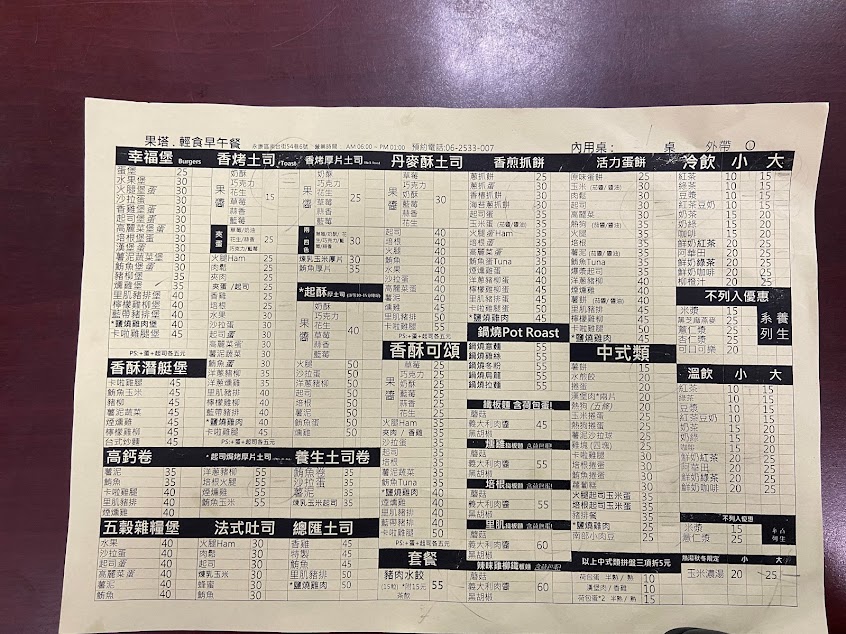 果塔．輕食早午餐
營業時間 AM 06:00 ~ PM 01:00 預約電話:06-2533-007
內用桌: 桌 外帶
幸福堡 Burgers
蛋堡 25
水果堡 30
火腿堡蛋 30
沙拉蛋 30
香雞堡蛋 30
起司堡蛋 30
高麗菜堡蛋 30
培根堡蛋 30
漢堡蛋 30
薯泥蔬菜堡蛋
鮪魚堡蛋
豬柳堡 35
燻雞堡 35
里肌豬排堡 40
檸檬雞柳堡
藍帶豬排堡
*鹽燒雞肉堡
卡啦雞腿堡 45
PS:+蛋+起司各五元
香酥潛艇堡
卡啦雞腿 45
鮪魚玉米 45
豬柳 45
薯泥蔬菜 45
煙燻雞 45
檸檬雞柳 45
台式炒麵 45
高鈣卷
薯泥 35
鮪魚 35
卡啦雞腿 40
里肌豬排 40
煙燻雞 40
五穀雜糧堡
水果 40
沙拉蛋 40
起司蛋 40
高麗菜蛋 40
薯泥 40
鮪魚 40
香烤土司 Toast
果醬
奶酥
巧克力
花生
草莓
蒜香
藍莓
15
夾蛋
草莓/奶油
花生/蒜香
巧克力/藍莓
25
火腿Ham 25
肉鬆 25
夾肉 25
夾蛋/起司 25
香雞 25
培根 25
水果 30
沙拉蛋 30
起司蛋 30
高麗菜蛋 30
薯泥蔬菜 30
鮪魚蛋 30
洋蔥豬柳 35
洋蔥燻雞 35
里肌豬排 40
檸檬雞柳 40
藍帶豬排 40
*鹽燒雞肉 40
卡啦雞腿 45
PS:+蛋+起司各五元
*起司焗烤土司
洋蔥豬柳 55
培根火腿 55
煙燻雞 55
鮪魚玉米 55
法式吐司
火腿Ham 30
肉鬆 30
起司 30
煉乳玉米 30
蜂蜜 30
鮪魚 30
香烤厚片土司
果醬
奶酥
巧克力
花生
草莓
蒜香
藍莓
25
煉乳玉米厚片 30
鮪魚厚片 35
*起酥厚土司
果醬
奶酥
巧克力
花生
草莓
蒜香
藍莓
40
火腿 50
沙拉蛋 50
洋蔥豬柳 50
起司 50
培根 50
薯泥 50
鮪魚蛋 50
燻雞 50
養生土司卷
鮪魚卷 35
沙拉蛋 35
薯泥 35
煉乳玉米起司 35
總匯土司
香雞 45
特製 45
鮪魚 45
里肌豬排 50
*鹽燒雞肉 50
丹麥酥土司
果醬
草莓
巧克力
花生
奶酥
蒜香
藍莓
30
起司 40
培根 40
火腿 40
鮪魚 40
水果 40
沙拉蛋 40
高麗菜蛋 40
薯泥 40
里肌豬排
煙燻雞
*鹽燒雞肉
卡啦雞腿 55
PS:+蛋+起司各五元
香酥可頌
果醬
草莓 25
巧克力 25
奶酥 25
蒜香 25
花生 25
火腿Ham 35
夾肉 / 香雞 35
沙拉蛋 35
起司 35
培根 35
薯泥蔬菜 35
鮪魚Tuna 35
*鹽燒雞肉 40
煙燻雞 40
里肌豬排 40
卡啦雞腿 50
PS:+蛋+起司各五元
套餐
豬肉水餃
(15粒) *附15元茶飲
55
香煎抓餅
蔥抓餅 25
蔥抓蛋 30
香椿抓餅 30
海苔蔥抓餅
起司蛋 35
火腿蛋Ham 35
培根蛋 35
鮪魚蛋Tuna 35
煙燻雞蛋
薯泥蛋
檸檬雞柳蛋
里肌豬排蛋
*鹽燒雞肉蛋
卡啦雞腿蛋 55
鍋燒Pot Roast
鍋燒意麵 55
鍋燒雞絲 55
鍋燒冬粉 55
鍋燒烏龍 55
鍋燒拉麵 55
鐵板麵 含荷包蛋!
蘑菇
義大利肉醬
黑胡椒
45
燻雞鐵板麵 含荷包蛋!
蘑菇
義大利肉醬
黑胡椒
55
培根鐵板麵 含荷包蛋!
蘑菇
義大利肉醬
黑胡椒
55
里肌鐵板麵 含荷包蛋!
蘑菇
義大利肉醬
黑胡椒
60
辣味雞柳鐵板麵 含荷包蛋!
蘑菇
義大利肉醬
黑胡椒
60
活力蛋餅
原味蛋餅 25
玉米 (茄醬/醬油) 30
肉鬆 30
起司 30
高麗菜 30
熱狗 (茄醬/醬油) 30
火腿 35
培根 35
薯泥 (茄醬/醬油) 35
鮪魚Tuna 35
爆漿起司 35
油條 35
煙燻雞 40
薯餅 (茄醬/醬油) 40
里肌豬排
檸檬雞柳
卡啦雞腿 50
*鹽燒雞肉 45
中式類
薯餅 15
米煎餃 20
捲蛋 20
漢堡肉*兩片 20
熱狗 (五條) 20
玉米捲蛋 25
熱狗捲蛋 25
薯泥沙拉球 25
雞塊 (四塊) 25
卡啦雞 30
培根捲蛋 30
鮪魚捲蛋 30
蘿蔔糕 30
火腿起司玉米蛋 35
培根起司玉米蛋 35
豬排餐 35
*鹽燒雞肉 35
南部小肉豆 25
以上中式類拼盤三項折5元
荷包蛋 半熟 / 熟 10
漢堡肉 / 香雞 10
荷包蛋*2 半熟 / 熟 15
冷飲 小 大
紅茶 10 15
綠茶 10 15
豆漿 10 15
紅茶豆奶 10 15
奶茶 15 20
奶綠 15 20
咖啡 15 20
鮮奶紅茶 20 25
阿華田 20 25
鮮奶綠茶 20 25
鮮奶咖啡 20 25
柳橙汁 20 25
不列入優惠
養生系列
米漿 15 20
薏仁漿 20 25
杏仁漿 20 25
可口可樂 20
溫飲 小 大
紅茶 10 15
綠茶 10 15
豆漿 10 15
紅茶豆奶 10 15
奶茶 15 20
奶綠 15 20
咖啡 15 20
鮮奶紅茶 20 25
阿華田 20 25
鮮奶綠茶 20 25
鮮奶咖啡 20 25
不列入優惠
養生系列
米漿 15 20
薏仁漿 20 25
熱湯秋冬限定 小 大
玉米濃湯 20 25